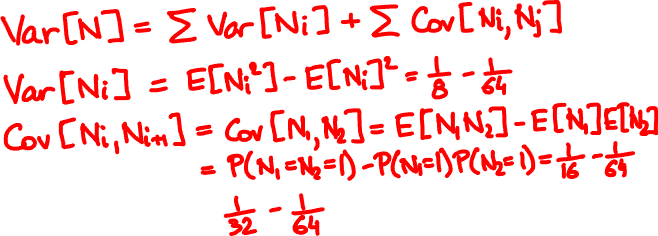 Var[N] = ∑ Var[Ni] + ∑ Cov[Ni, Nj]
Var[Ni] = E[Ni²] - E[Ni]² = 1/8 - 1/64
Cov[Ni, Ni+1] = Cov[N1, N2] = E[N1N2] - E[N1]E[N2]
= P(N1=N2=1) - P(N1=1)P(N2=1) = 1/16 - 1/64
1/32 - 1/64